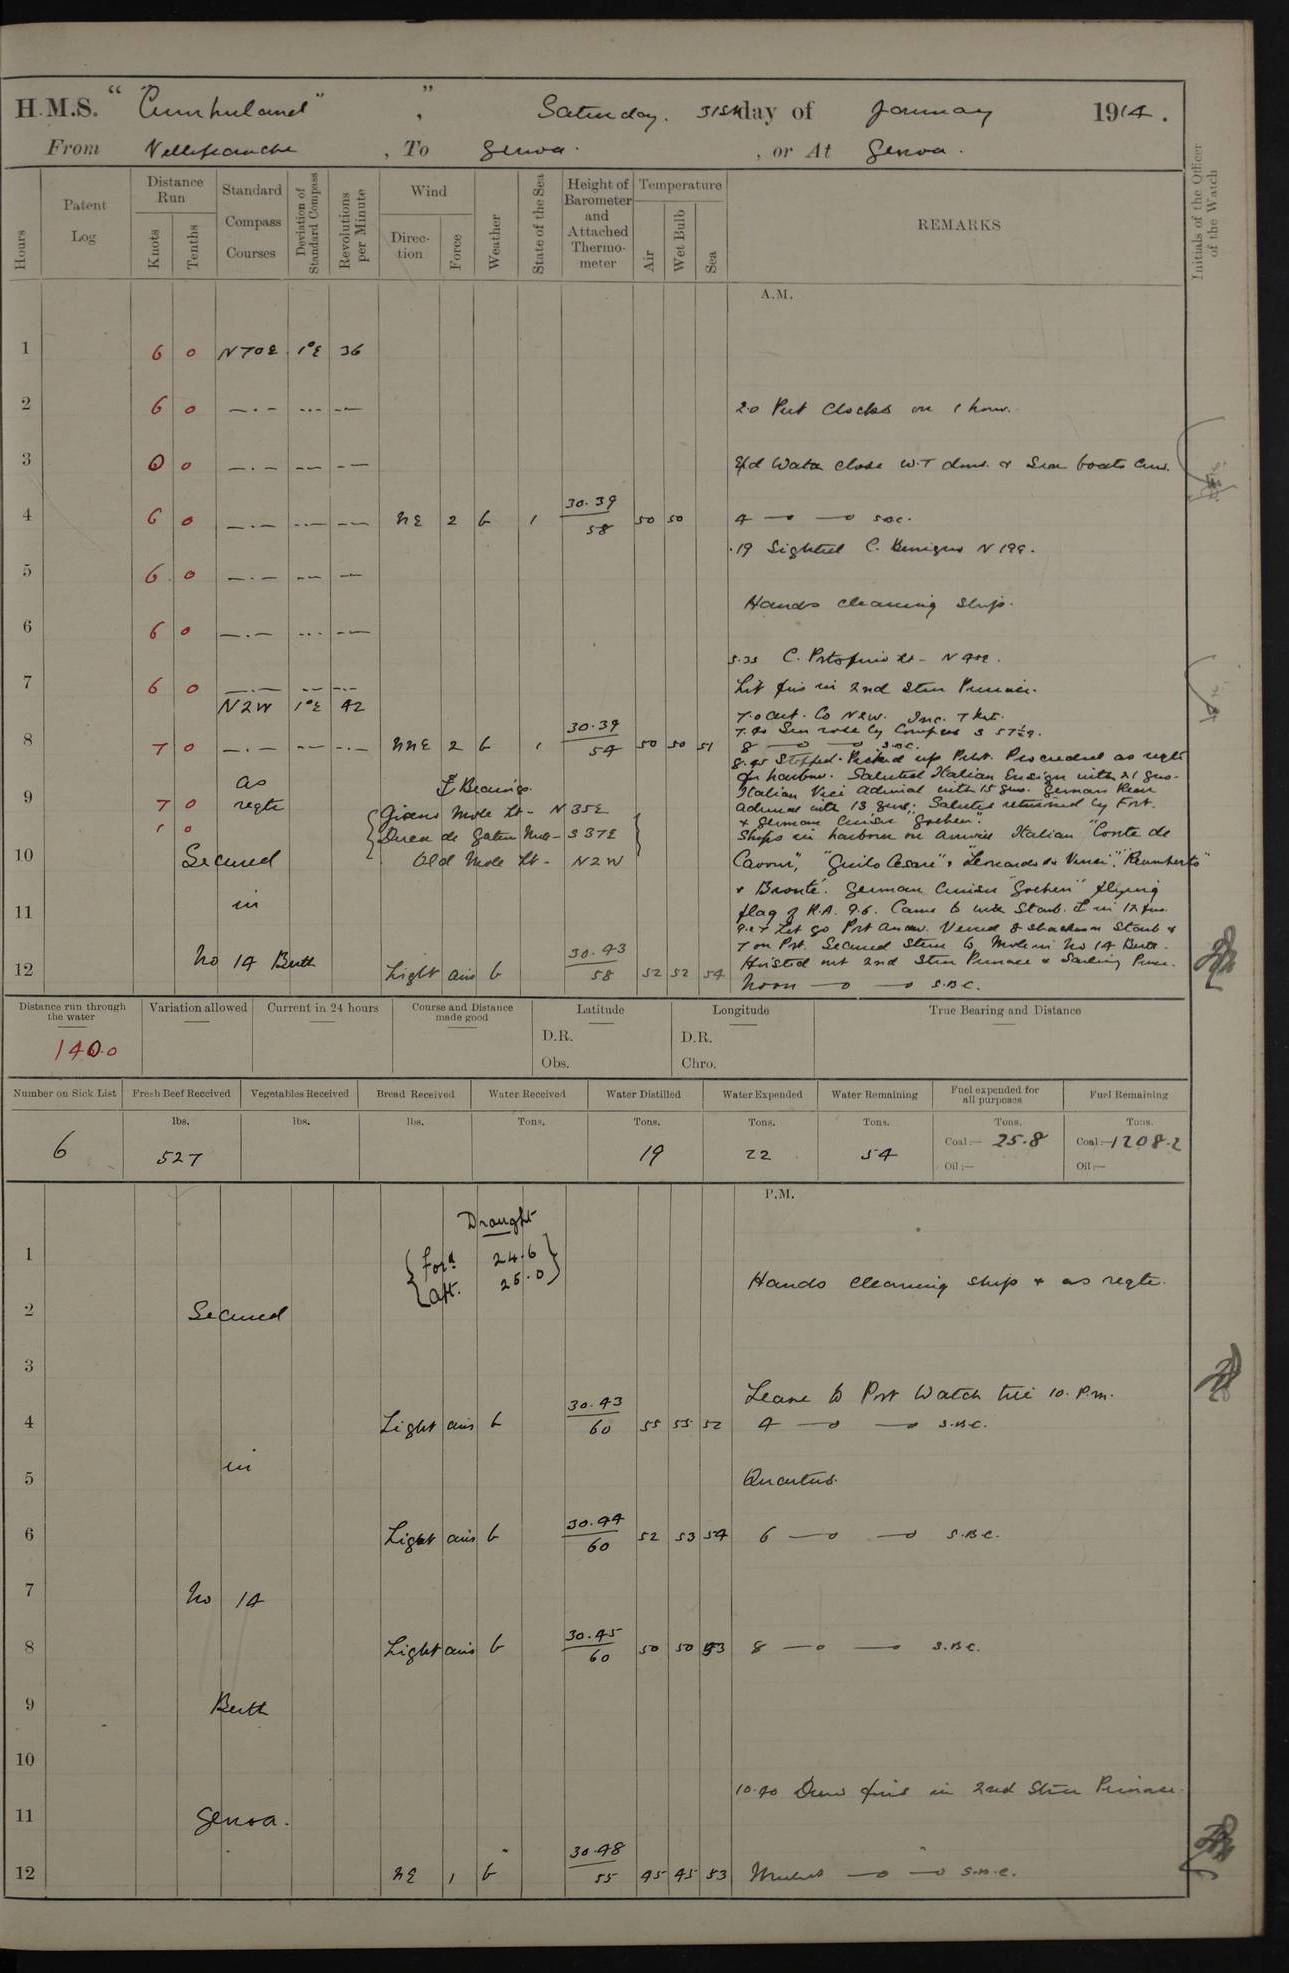 H.M.S. "Cumberland", Saturday. 31st day of January 1914.
From Villefranche, To Genoa. , or At Genoa.
Hours
Patent Log
Distance Run
Knots
Tenths
Standard Compass Courses
Deviation of Standard Compass
Revolutions per Minute
Wind
Direction
Force
Weather
State of the Sea
Height of Barometer and Attached Thermometer
Temperature
Air
Wet Bulb
Sea
REMARKS
Initials of the Officer of the Watch
A.M.
1 6 0 N70E 1°E 36
2 6 0 —·— --- --- 2.0 Put Clocks on 1 hour.
3 0 0 —·— --- --- Exd Watch close W.T doors & Sea boats Crew.
4 6 0 —·— --- --- NE 2 b 1 30.39 58 50 50 4 —o —o SBC.
.19 Sighted C. N19E.
5 6 0 —·— --- ---
Hands cleaning ship.
6 6 0 —·— --- ---
5.35 C. Portofino Lt - N40E.
7 6 0 —·— --- --- Lit fires in 2nd Stm Pinnace.
N2W 1°E 42
7.0 alt. Co N2W. Inc. 7 kts.
7.40 Sun rose by Compass S 57½E.
8 7 0 —·— --- --- NNE 2 b 1 30.39 54 50 50 51 8 —o —o SBC.
8.45 Stopped. Picked up Pilot. Proceeded as reqte
for harbour. Saluted Italian Ensign with 21 guns.
as
Bearings.
Italian Vice Admiral with 15 guns. German Rear
9 7 0 reqte Giano Mole Lt - N 35E
Admiral with 13 guns: Salutes returned by Fort.
& German Cruiser "Goeben".
1 0 Duca de Galliera Mole - S 37E
Ships in harbour on arrival Italian "Conte de
10 Secured Old Mole Lt - N2W
Cavour", "Guilo Cesare", "Leonardo da Vinci", "Reumberto"
& Bronte. German Cruiser "Goeben" flying
11 in
flag of R.A. 9.6. Came to with Starb. in 12 fms.
9.27 Let go Port Anchor. Veered 8 shackles on Starb &
7 on Port. Secured Stern to Mole in No 14 Berth.
No 14 Berth
Hoisted out 2nd Stm Pinnace & Sailing Pinnce.
12 Light airs b 30.43 58 52 52 54 Noon —o —o S.B.C.
Distance run through the water
Variation allowed
Current in 24 hours
Course and Distance made good
Latitude
Longitude
True Bearing and Distance
140.0
D.R.
Obs.
D.R.
Chro.
Number on Sick List
Fresh Beef Received
Vegetables Received
Bread Received
Water Received
Water Distilled
Water Expended
Water Remaining
Fuel expended for all purposes
Fuel Remaining
lbs. lbs. lbs. Tons. Tons. Tons. Tons. Tons. Tons.
6 527 19 22 54 Coal:— 25.8 Coal:— 1208.2
Oil:— Oil:—
P.M.
Draught
1 Ford 24.6
Aft. 25.0
Hands cleaning ship & as reqte.
2 Secured
3
Leave to Port Watch till 10. P.m.
4 Light airs b 30.43 60 55 55 52 4 —o —o S.B.C.
in
5 Quarters.
6 Light airs b 30.44 60 52 53 54 6 —o —o S.B.C.
7 No 14
8 Light airs b 30.45 60 50 50 53 8 —o —o S.B.C.
9 Berth
10
10.40 Drew fires in 2nd Stm Pinnace.
11 Genoa.
12 NE 1 b 30.48 55 45 45 53 Midnt —o —o S.B.C.